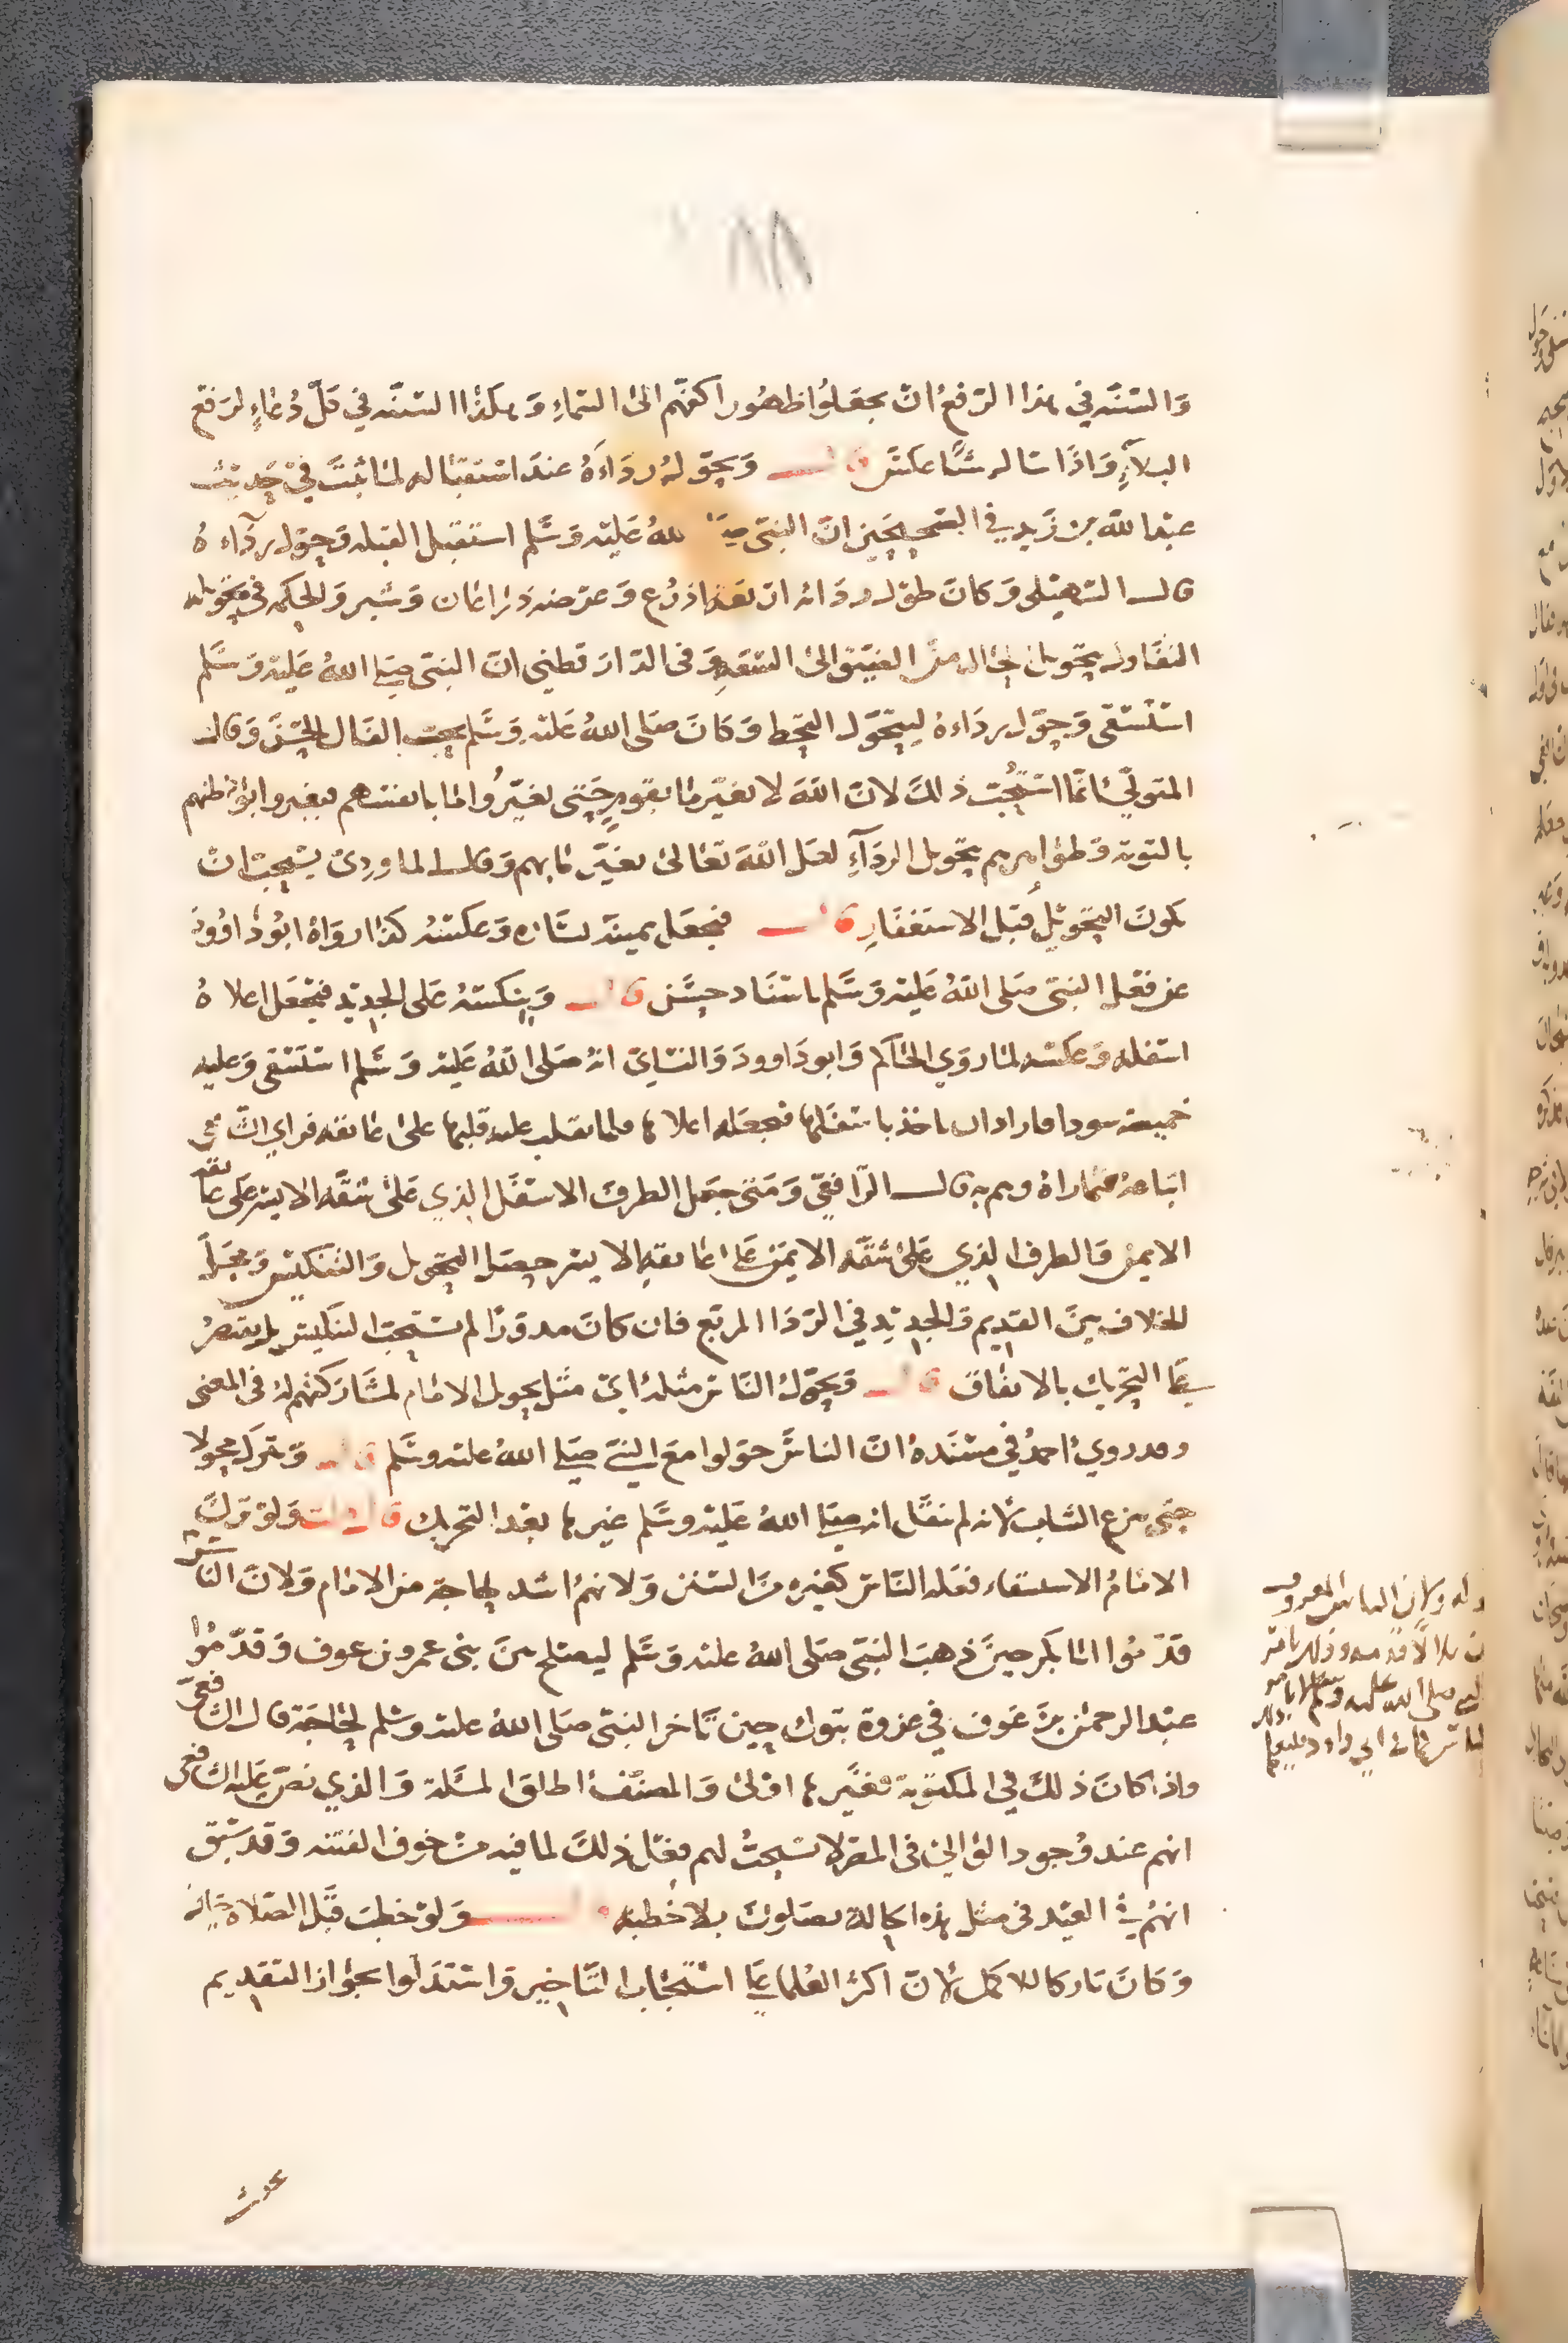 والسنة في هذا الرفع ان يجعلوا ظهور اكفهم الى السماء وهكذا السنة في كل دعاء لرفع
البلاء واذا سال شيئا عكس قال ويحول رداءه عند استقباله لما ثبت في حديث
عبد الله بن زيد في الصحيحين ان النبي صلى الله عليه وسلم استقبل القبلة وحول رداءه
قال السهيلي وكان طول ردائه اربعة اذرع وعرضه ذراعان وشبر والحكمة في تحويله
التفاول بتحويل الحال من الضيق الى السعة وفي الدارقطني ان النبي صلى الله عليه وسلم
استسقى وحول رداءه ليتحول القحط وكان صلى الله عليه وسلم يحب الفال الحسن وقال
المتولي انما استحب ذلك لان الله لا يغير ما بقوم حتى يغيروا ما بانفسهم فيغيروا بواطنهم
بالتوبة وظواهرهم بتحويل الرداء لعل الله تعالى يغير ما بهم وقال الماوردي يستحب ان
يكون التحويل قبل الاستغفار قال فيجعل يمينه يساره وعكسه كذا رواه ابو داوود
عن فعل النبي صلى الله عليه وسلم باسناد حسن قال وينكسه على الجديد فيجعل اعلاه
اسفله وعكسه لما روى الحاكم وابو داوود والنساي انه صلى الله عليه وسلم استسقى وعليه
خميصة سودا فاراد ان ياخذ باسفلها فيجعله اعلاها فلما ثقلت عليه قلبها على عاتقه فراى الشافعي
اتباعه فيما اراده وهم به قال الرافعي ومتى جعل الطرف الاسفل الذي على شقه الايسر على عاتقه
الايمن والطرف الذي على شقه الايمن على عاتقه الايسر حصل التحويل والتنكيس ومحل
الخلاف بين القديم والجديد في الردا المربع فان كان مدورا لم يستحب التنكيس بل يقتصر
على التحويل بالاتفاق قال ويحول الناس مثله اي مثل تحويل الامام لمشاركتهم له في المعنى
وقد روى احمد في مسنده ان الناس حولوا مع النبي صلى الله عليه وسلم قال ويترك محولا
حتى ينزع الثياب لانه لم ينقل انه صلى الله عليه وسلم غيرها بعد التحويل قال ولو ترك
الامام الاستسقاء فعله الناس كغيره من السنن ولانهم اشد حاجة من الامام ولان الناس
قدموا ابا بكر حين ذهب النبي صلى الله عليه وسلم ليصلح بين بني عمرو بن عوف وقدموا
عبد الرحمن بن عوف في غزوة تبوك حين تاخر النبي صلى الله عليه وسلم لحاجة قال الشافعي
واذا كان ذلك في المكتوبة فغيرها اولى والمصنف اطلق المسلة والذي نص عليه الشافعي
انهم عند وجود الوالي في المصر لا يستحب لهم فعل ذلك لما فيه من خوف الفتنة وقد سبق
انهم في العيد في مثل هذه الحالة يصلون بلا خطبة قال ولو خطب قبل الصلاة جاز
وكان تاركا للاكمل لان اكثر العلما على استحباب التاخير واستدلوا بجواز التقديم